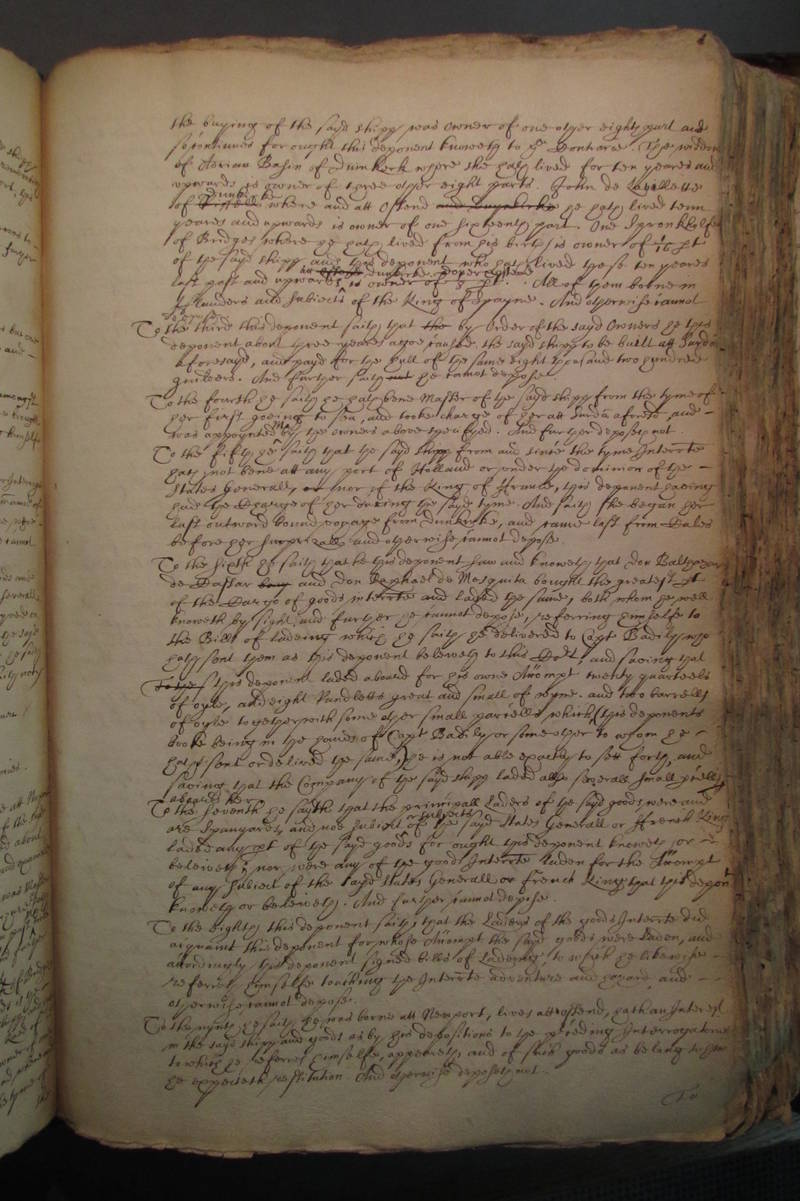 the buying of the sayd shipp was Owner of one other eighth part and
so continues for ought this deponent knoweth to the Contrarie. The widdow
of Adrian Basin of Dunkerk where she hath lived for ten yeares and
upwards is owner of three other eight parts. John de
of dunkerke where and att Ostend and Dunkerke he hath lived tenn
yeares and upwards is owner of one sixteenth part. One
of Bridges where he hath lived from his birth is owner of 1/16 pt
of the sayd shipp and this deponent who hath lived these ten yeares
last past and upwards att Ostend dunkerke is owner of pt. All of them borne in
Flanders and subiects of the King of Spayne. And otherwise cannot
depose
To the third this deponent saith that the by Order of the sayd Owners he this
deponent about three yeares agoe caused the sayd shipp to be built att
aforesayd, and payd for the hull of the same eight thousand two hundred
guilders. And further saith not he cannot depose.
To the fourth he saith he hath bene Master of the sayd shipp from the tyme of
her first goeing to sea, and tooke charge of her att and
was appoynted Mr by the owners above specifyed. And further deposeth not.
To the fifth he saith that the sayd shipp from and since the tyme Interrte
hath not bene att any port of Holland or under the dominion of the
States Generall, or nor of the King of France, this deponent having
had the Charge of her during the sayd tyme And saith she began her
last outward bound voyage from Dunkirke, and came last from Cales
before her surprizall, and otherwise cannot depose.
To the sixth he saith that he this deponent saw and knoweth that Don Balthazar
de and Don Raphael de Mesquita bought the greatest pt
of the Cargo of goods interrte and laded the same, both whom he well
knoweth by sight, and further he cannot depose, referring himselfe to
the Bills of ladeing which he saith he delivered to Capt Badily who
hath sent them as this deponent beleveth to this Cort, and saving that
To the this deponent laded aboard for his owne Accompt twenty quarteels
of oyle, and eight Rundletts great and small of wyne. and two barrells
of oyle together with some other small parcells, which (this deponents
booke being in the hands of Capt Badily or some other to whom he
hath sent or delived the same,) he is not able exactly to sett forth, and
saving that the Company of the sayd shipp laded also severall small prcells
aboard her
To the seventh he sayth that the principall Laders of the sayd goods were and
are Spanyards and noe subiect or subiects of the sayd States Generall or French King
ladde any pt of the sayd goods for ought this deponent knoweth or
beleiveth; nor were any of the goods Interrte laden for the Accompt
of any subiect of the sayd States Generall or French King that this depont
knoweth or beleveth. And further cannot depose.
To the eighth this deponent saith, that the Laders of the goods Interrte did
acquaint this deponent for whose Accompt the sayd goods were laden, and
accordingly this deponent signed bills of Ladeing, to which he likewise
referrs himselfe touching the Interrte adventure and hazard, and
otherwise cannot depose.
To the nynth he saith he was borne att Newport, lives att Ostend, hath an Interest
in the sayd shipp and goods as by his depositions to the preceding Interrogatories
to which he referrs himselfe, appeareth, and of such goods as belong to him
he expecteth restitution. And otherwise deposeth not.
To